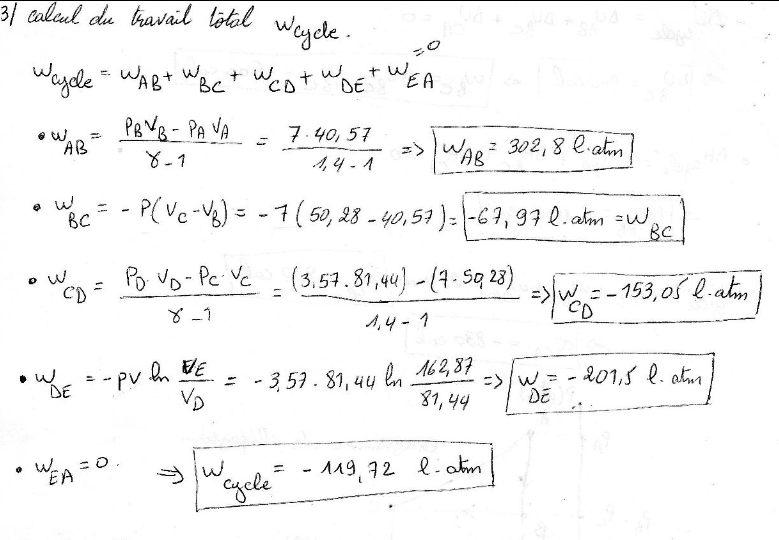 3/ calcul du travail total Wcycle.
Wcycle = WAB + WBC + WCD + WDE + WEA = 0
• WAB = (PBVB - PAVA)/(γ-1) = (7·40,57)/(1,4-1) => WAB = 302,8 l·atm
• WBC = - P(VC-VB) = -7(50,28-40,57) = -67,97 l.atm = WBC
• WCD = (PD·VD - PC·VC)/(γ-1) = ((3,57·81,44) - (7·50,28))/(1,4-1) => WCD = -153,05 l·atm
• WDE = -PV ln VE/VD = -3,57·81,44 ln 162,87/81,44 => WDE = -201,5 l.atm
• WEA = 0. => Wcycle = -119,72 l.atm